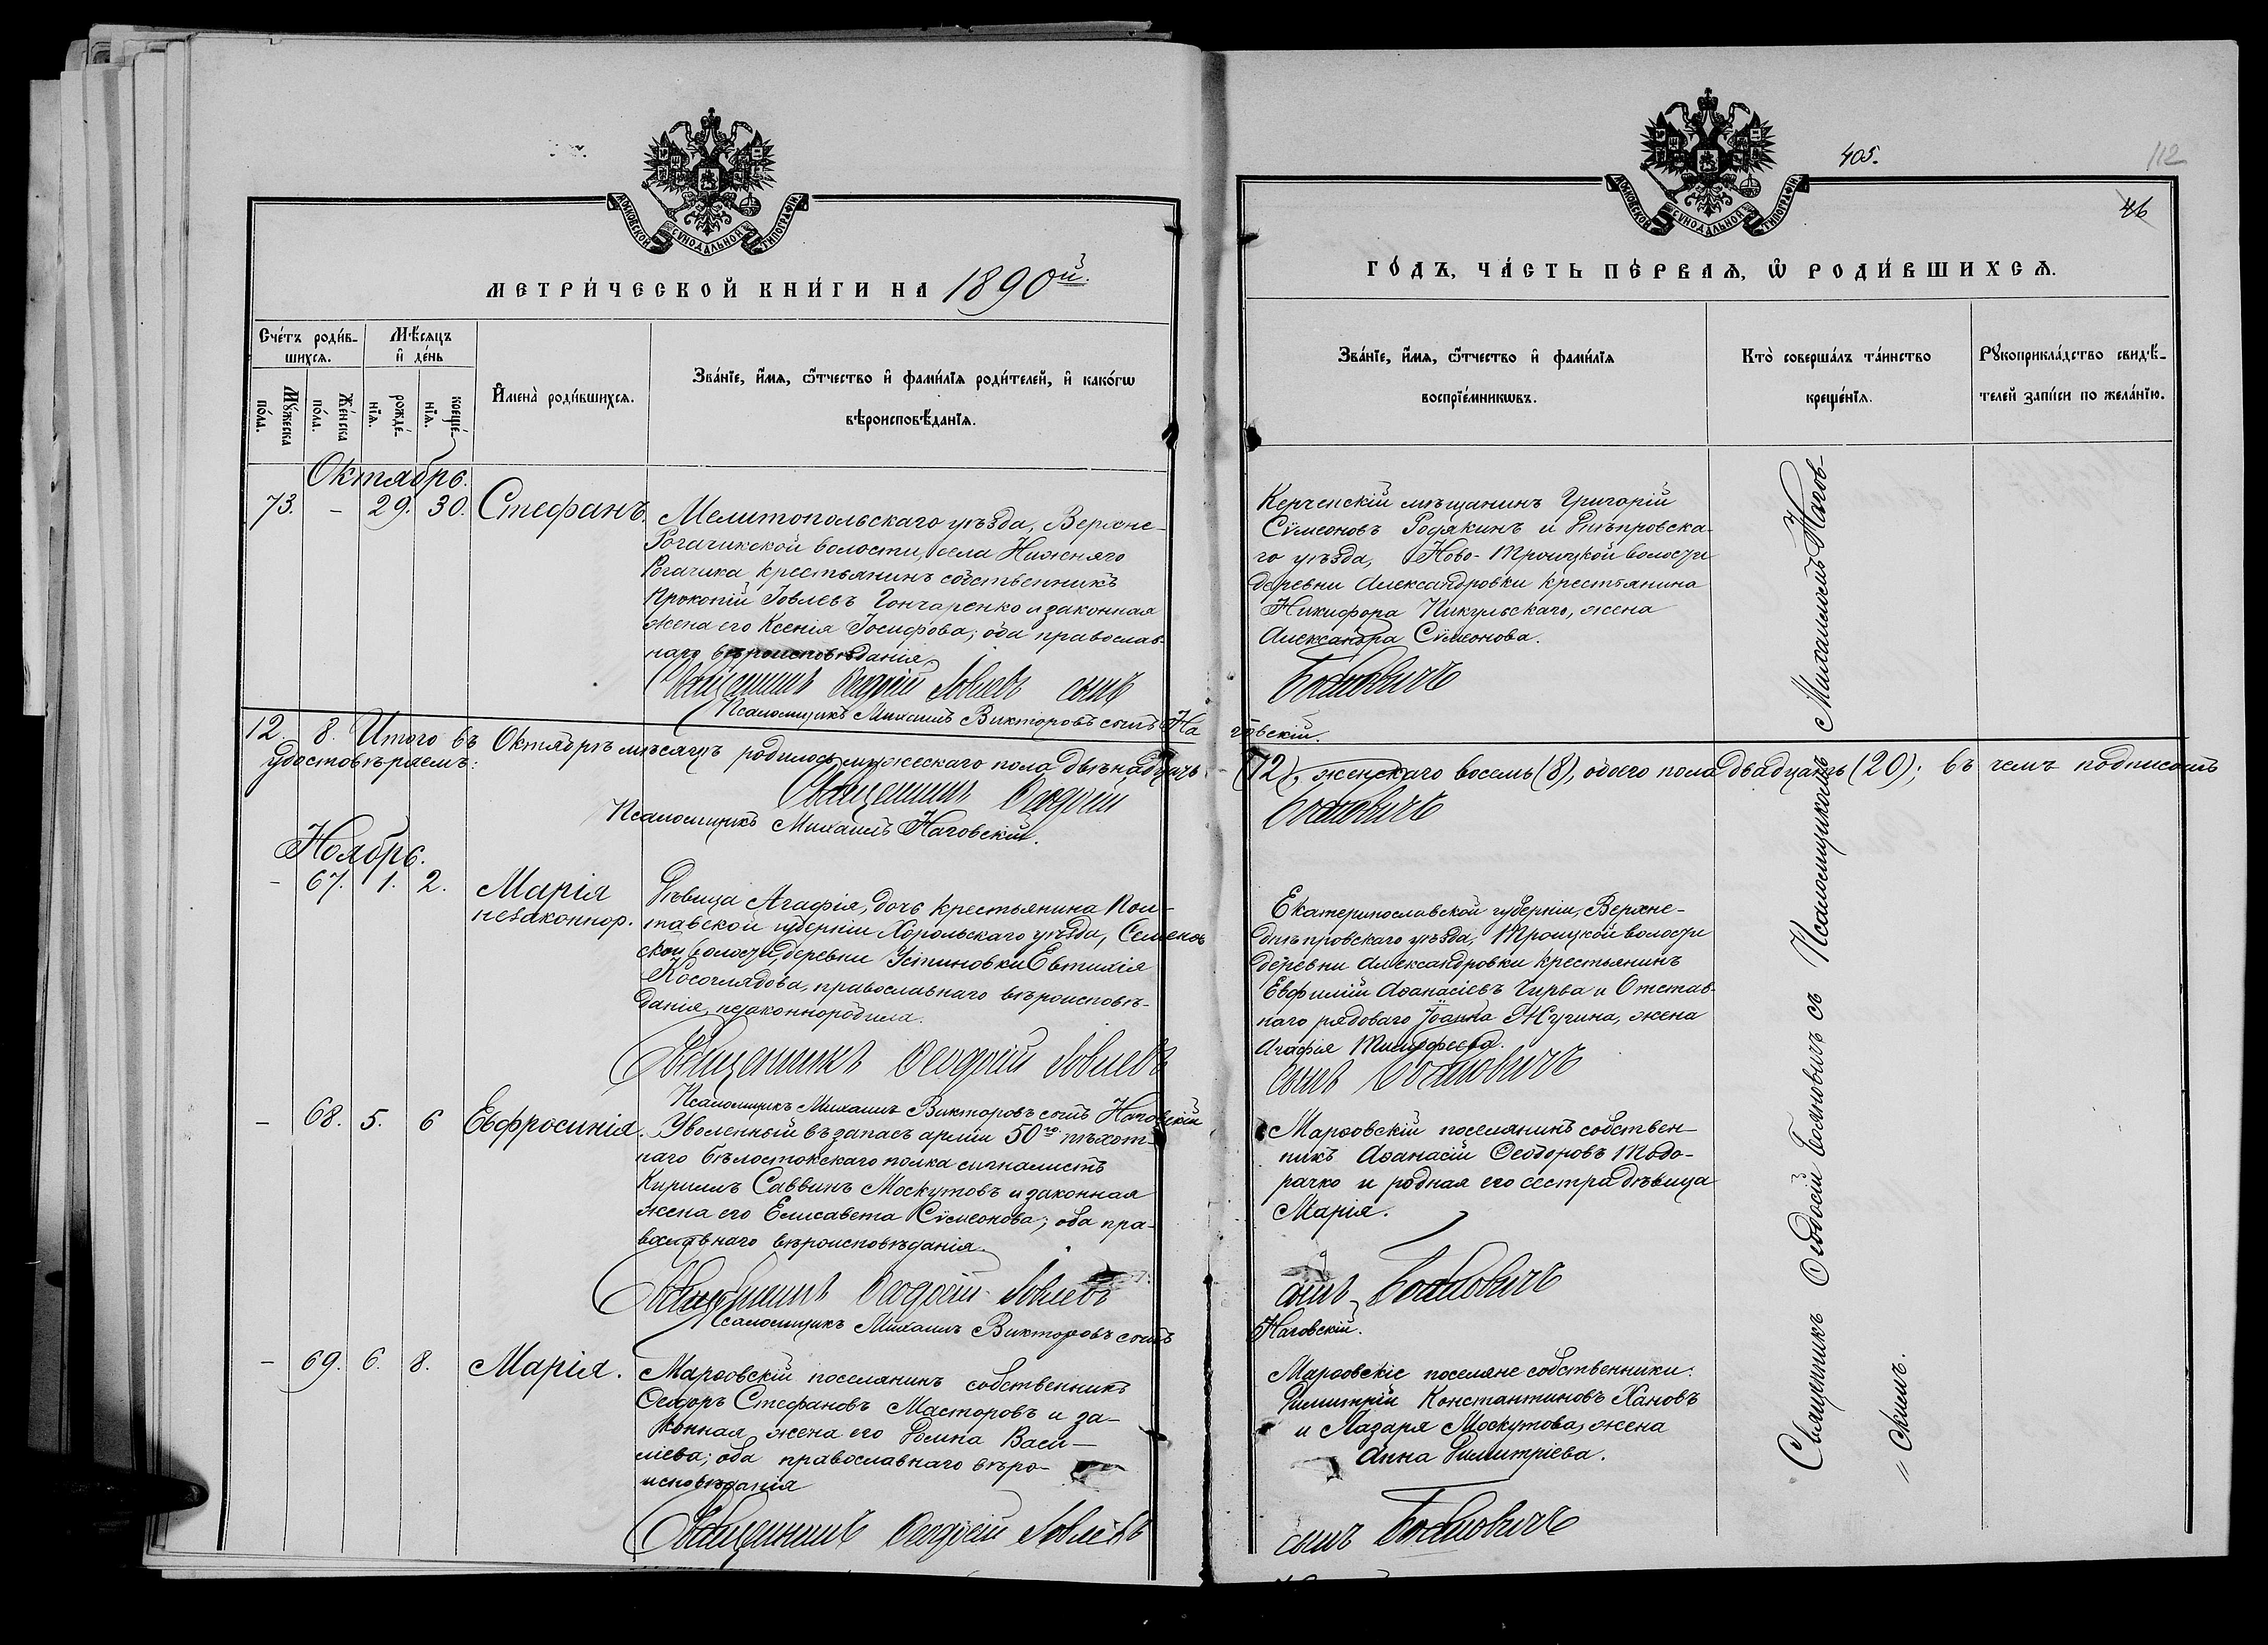 МОСКОВСКОЙ СѴНОДАЛЬНОЙ ТИПОГРАФІИ
МЕТРИ́ЧЕСКОЙ КНИ́ГИ НА 1890й
Сче́тъ роди́в-
шихсѧ.
Мѣ́сѧцъ
и҆ де́нь
Мꙋ́жеска
по́ла.
Же́нска
по́ла.
рожде́-
нїѧ.
креще́-
нїѧ.
И҆мена̀ роди́вшихсѧ.
Зва́нїе, и҆́мѧ, ѻ҆́тчество и҆ фами́лїѧ роди́телей, и҆ како́гѡ
вѣроисповѣ́данїѧ.
Октябрь.
73. – 29. 30. Стефанъ.
Мелитопольскаго уѣзда, Верхне-
Рогачикской волости, села Нижняго
Рогачика крестьянинъ собственникъ
Прокопій Іовлевъ Гончаренко и законная
жена его Ксенія Іосифова; оба православ-
наго вѣроисповѣданія.
Священникъ Ѳеодосій Іовлевъ сынъ
Псаломщикъ Михаилъ Викторовъ сынъ На
12. 8. Итого въ Октябрѣ мѣсяцѣ родилось мужескаго пола двѣнадцать
удостовѣряемъ:
Священникъ Ѳеодосій
Псаломщикъ Михаилъ Наговскій.
Ноябрь.
– 67. 1. 2. Марія
незаконнор.
Дѣвица Агафія, дочь крестьянина Пол-
тавской губерніи Хорольскаго уѣзда, Семенов
ской волости, деревни Устиновки Евтихія
Косоглядова, православнаго вѣроисповѣ-
данія, незаконнородила.
Священникъ Ѳеодосій Іовлевъ
Псаломщикъ Михаилъ Викторовъ сынъ Наговскій
– 68. 5. 6 Евфросинія.
Уволенный въ запасъ арміи 50го пѣхот-
наго Бѣлостокскаго полка сигналистъ
Кириллъ Саввинъ Москутовъ и законная
жена его Елисавета Сѵмеонова; оба пра-
вославнаго вѣроисповѣданія.
Священникъ Ѳеодосій Іовлевъ
Псаломщикъ Михаилъ Викторовъ сынъ
– 69. 6. 8. Марія.
Марѳовскій поселянинъ собственникъ
Ѳеодоръ Стефановъ Масторовъ и за-
конная жена его Домна Васи-
лiева; оба православнаго вѣро-
исповѣданія
Священникъ Ѳеодосій Іовлевъ
405.
112
46
МОСКОВСКОЙ СѴНОДАЛЬНОЙ ТИПОГРАФІИ
ГО́ДЪ, ЧА́СТЬ ПЕ́РВАѦ, Ѡ҆ РОДИ́ВШИХСѦ.
Зва́нїе, и҆́мѧ, ѻ҆́тчество и҆ фами́лїѧ
воспрїе́мникѡвъ.
Кто̀ соверша́лъ та́инство
креще́нїѧ.
Рꙋкоприкла́дство свидѣ́-
телей за́писи по жела́нїю.
Керченскій мѣщанинъ Григорій
Сѵмеоновъ Родякинъ и Днѣпровска-
го уѣзда, Ново-Троицкой волости
деревни Александровки крестьянина
Никифора Пикульскаго, жена
Александра Сѵмеонова.
Бояновичъ
говскій.
(12), женскаго восемь (8), обоего пола двадцать (20); въ чемъ подписомъ
Бояновичъ
Екатеринославской губерніи, Верхне-
днѣпровскаго уѣзда, Троицкой волости
деревни Александровки крестьянинъ
Евфимій Аѳанасіевъ Чирва и Отстав-
наго рядоваго Іоанна Жучина, жена
Агафія Тимофеева.
сынъ Бояновичъ
Марѳовскій поселянинъ собствен-
никъ Аѳанасій Ѳеодоровъ Тодо-
рачко и родная его сестра дѣвица
Марія.
сынъ Бояновичъ
Наговскій.
Марѳовскіе поселяне собственники:
Димитрій Константиновъ Хановъ
и Лазаря Москутова, жена
Анна Димитріева.
сынъ Бояновичъ
Священникъ Ѳеодосій Бояновичъ съ Псаломщикомъ Михаиломъ Нагов-
„ скимъ.